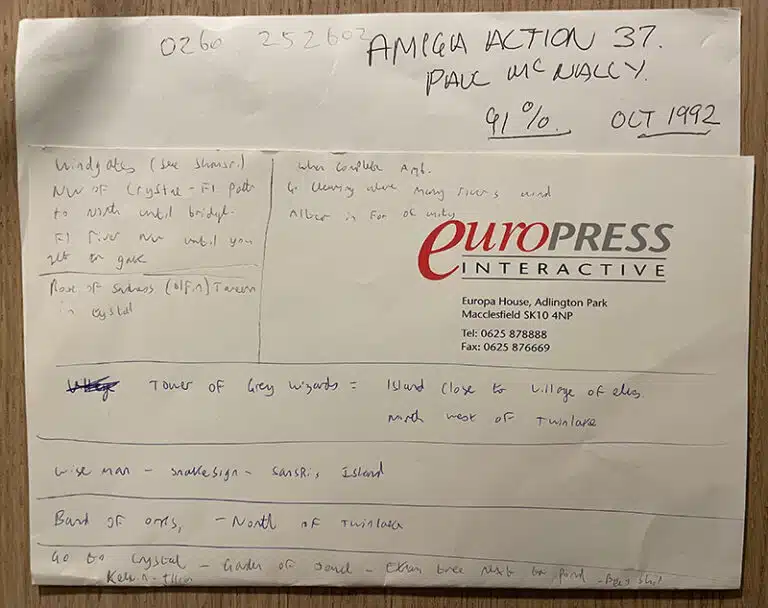 0260 252602
AMIGA ACTION 37.
PAUL MCNALLY.
91%. OCT 1992
Windgates (see Shansri)
NW of Crystal - Fl path
to North until bridge.
Fl river NW until you
get to gate
Rose of Sadness (Olfin) Tavern
in Crystal
When complete
Go clearing where many rivers wind
Altar is For of unity
euroPRESS
INTERACTIVE
Europa House, Adlington Park
Macclesfield SK10 4NP
Tel: 0625 878888
Fax: 0625 876669
Tower of Grey Wizards = Island close to village of elves.
North west of Twinlake
Wise man - snakesign - Sansri's Island
Band of orcs, - North of Twinlake
Go to Crystal - of - tree next to pond